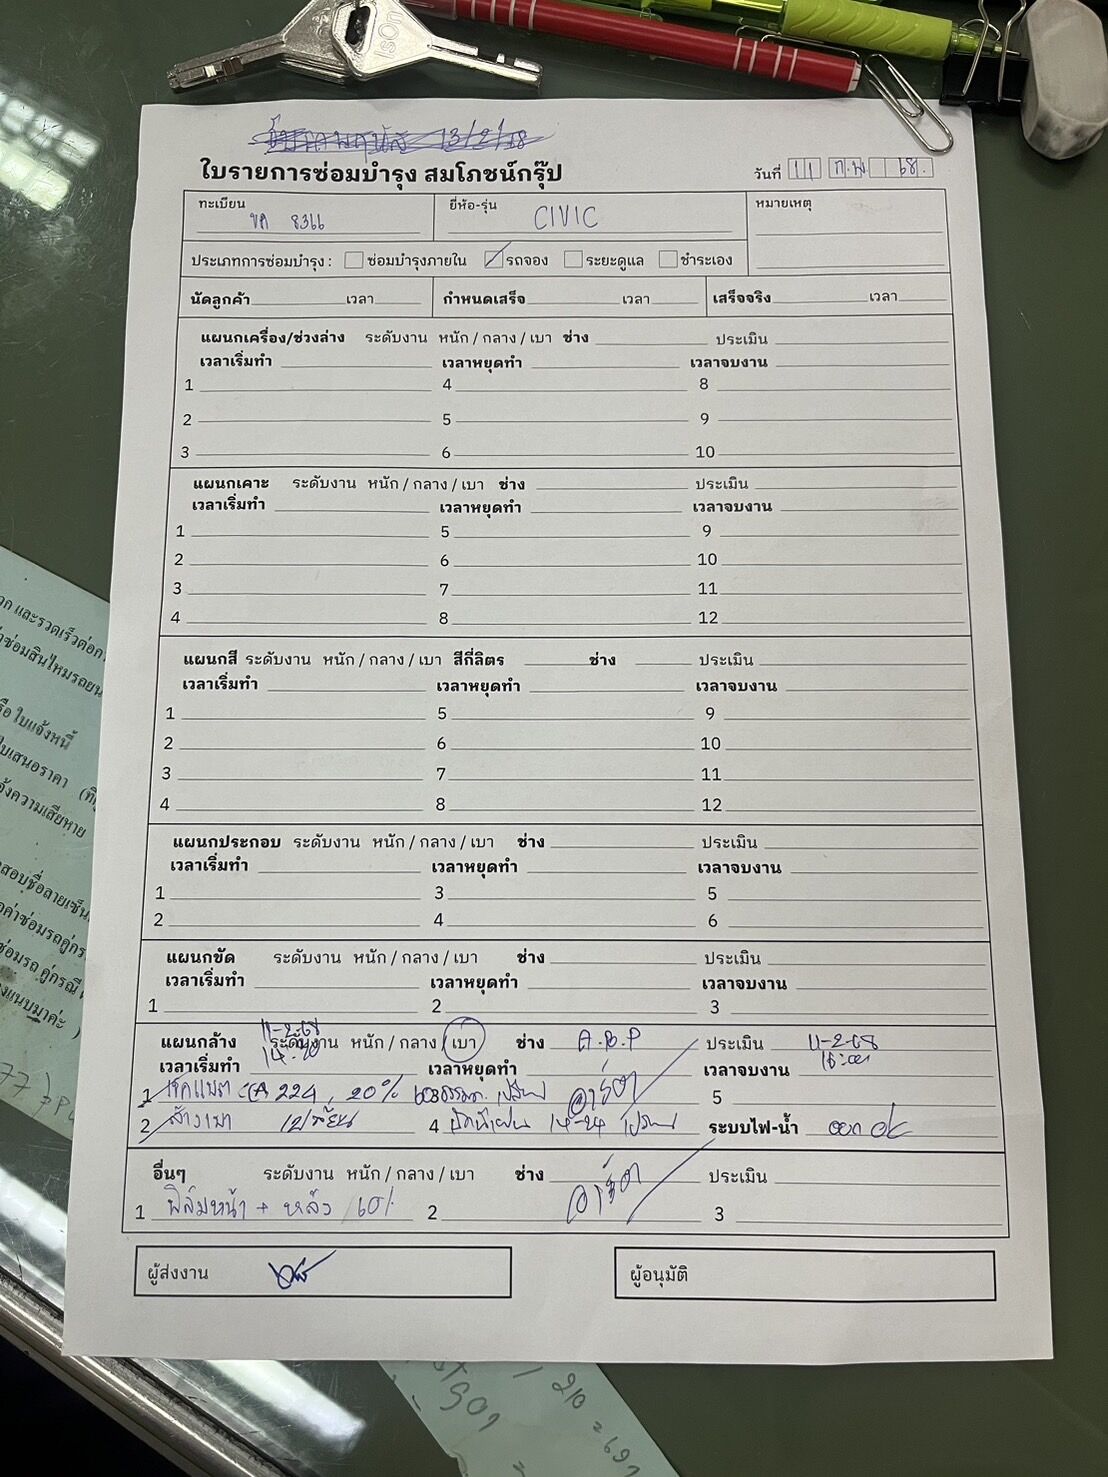 13/2/68
ใบรายการซ่อมบำรุง สมโภชน์กรุ๊ป วันที่ 11 ก.พ. 68.
ทะเบียน ขค 8366 ยี่ห้อ-รุ่น CIVIC หมายเหตุ
ประเภทการซ่อมบำรุง : ซ่อมบำรุงภายใน รถจอง ระยะดูแล ชำระเอง
นัดลูกค้า เวลา กำหนดเสร็จ เวลา เสร็จจริง เวลา
แผนกเครื่อง/ช่วงล่าง ระดับงาน หนัก / กลาง / เบา ช่าง ประเมิน
เวลาเริ่มทำ เวลาหยุดทำ เวลาจบงาน
1 4 8
2 5 9
3 6 10
แผนกเคาะ ระดับงาน หนัก / กลาง / เบา ช่าง ประเมิน
เวลาเริ่มทำ เวลาหยุดทำ เวลาจบงาน
1 5 9
2 6 10
3 7 11
4 8 12
แผนกสี ระดับงาน หนัก / กลาง / เบา สีกี่ลิตร ช่าง ประเมิน
เวลาเริ่มทำ เวลาหยุดทำ เวลาจบงาน
1 5 9
2 6 10
3 7 11
4 8 12
แผนกประกอบ ระดับงาน หนัก / กลาง / เบา ช่าง ประเมิน
เวลาเริ่มทำ เวลาหยุดทำ เวลาจบงาน
1 3 5
2 4 6
แผนกขัด ระดับงาน หนัก / กลาง / เบา ช่าง ประเมิน
เวลาเริ่มทำ เวลาหยุดทำ เวลาจบงาน
1 2 3
แผนกล้าง 11-2-68 ระดับงาน หนัก / กลาง / เบา ช่าง A.B.P ประเมิน 11-2-68
เวลาเริ่มทำ 14:20 เวลาหยุดทำ เวลาจบงาน 16:00
1 เช็คแบต CA 224, 20% 5
2 ล้างเบา 4 ปัดน้ำฝน 14-24 ระบบไฟ-น้ำ ok
อื่นๆ ระดับงาน หนัก / กลาง / เบา ช่าง ประเมิน
1 ฟิล์มหน้า + หลัง 60% 2 3
ผู้ส่งงาน ผู้อนุมัติ
และรวดเร็วต่อก
ใบแจ้งหนี้
ใบเสนอราคา
จ้งความเสียหาย